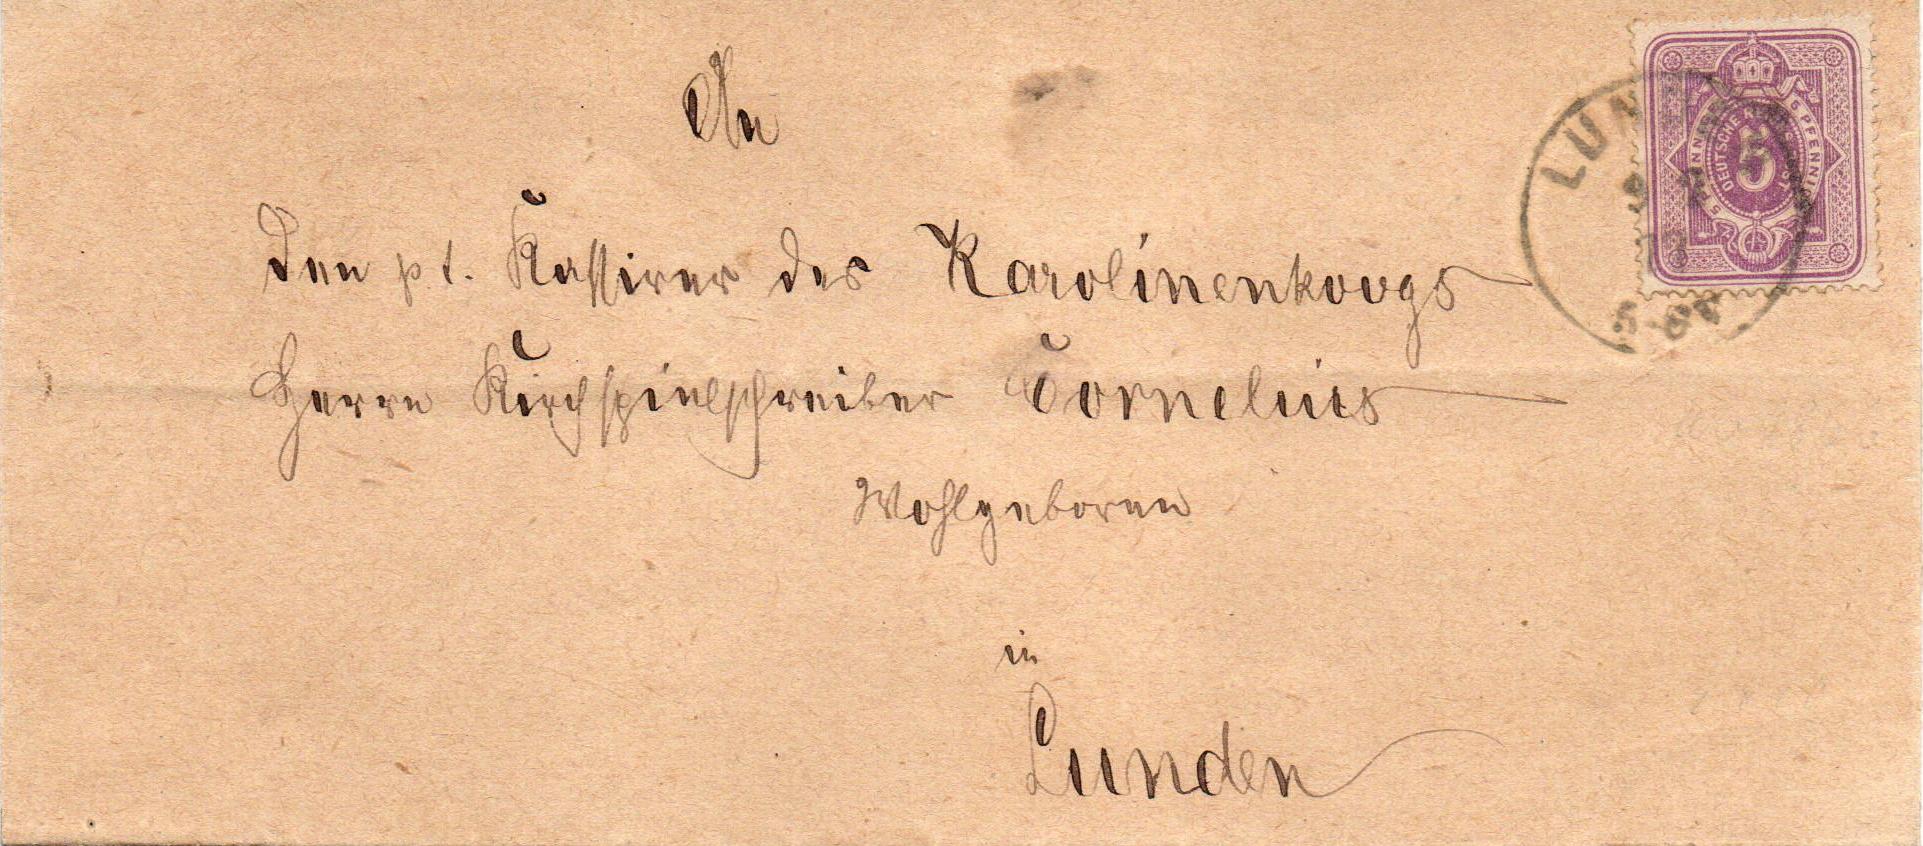 An
den pt. Kassirer des Karolinenkoogs
Herrn Kirchspielschreiber Cornelius
Wohlgeboren
in
Lunden
DEUTSCHE REICHS-POST
5 PFENNIG
5
LUNDEN